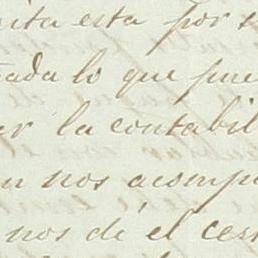 nita esta por s
ada lo que pue
ar la contabil
n nos acompa
nos dé el cer